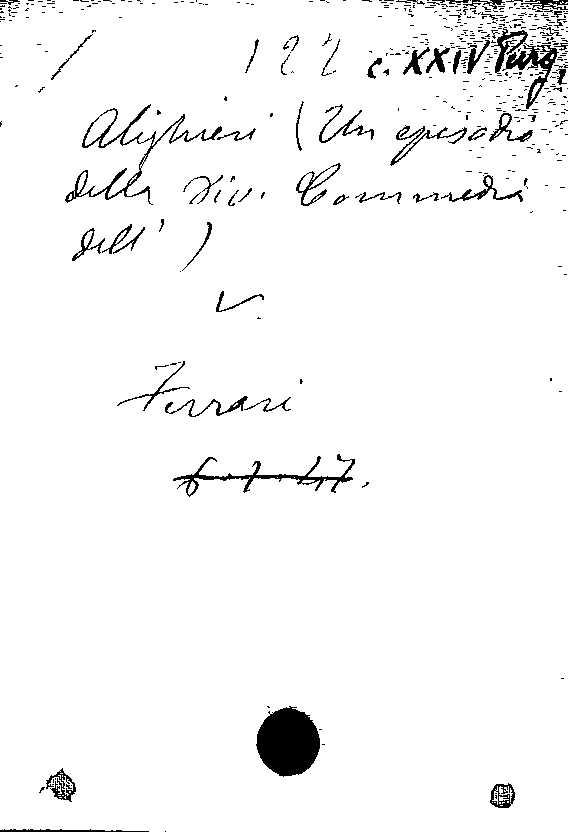 / 122 c. XXIV Purg.
Alighieri (Un episodio
della Div. Commedia
dell')
V.
Ferrari
6.7.47.